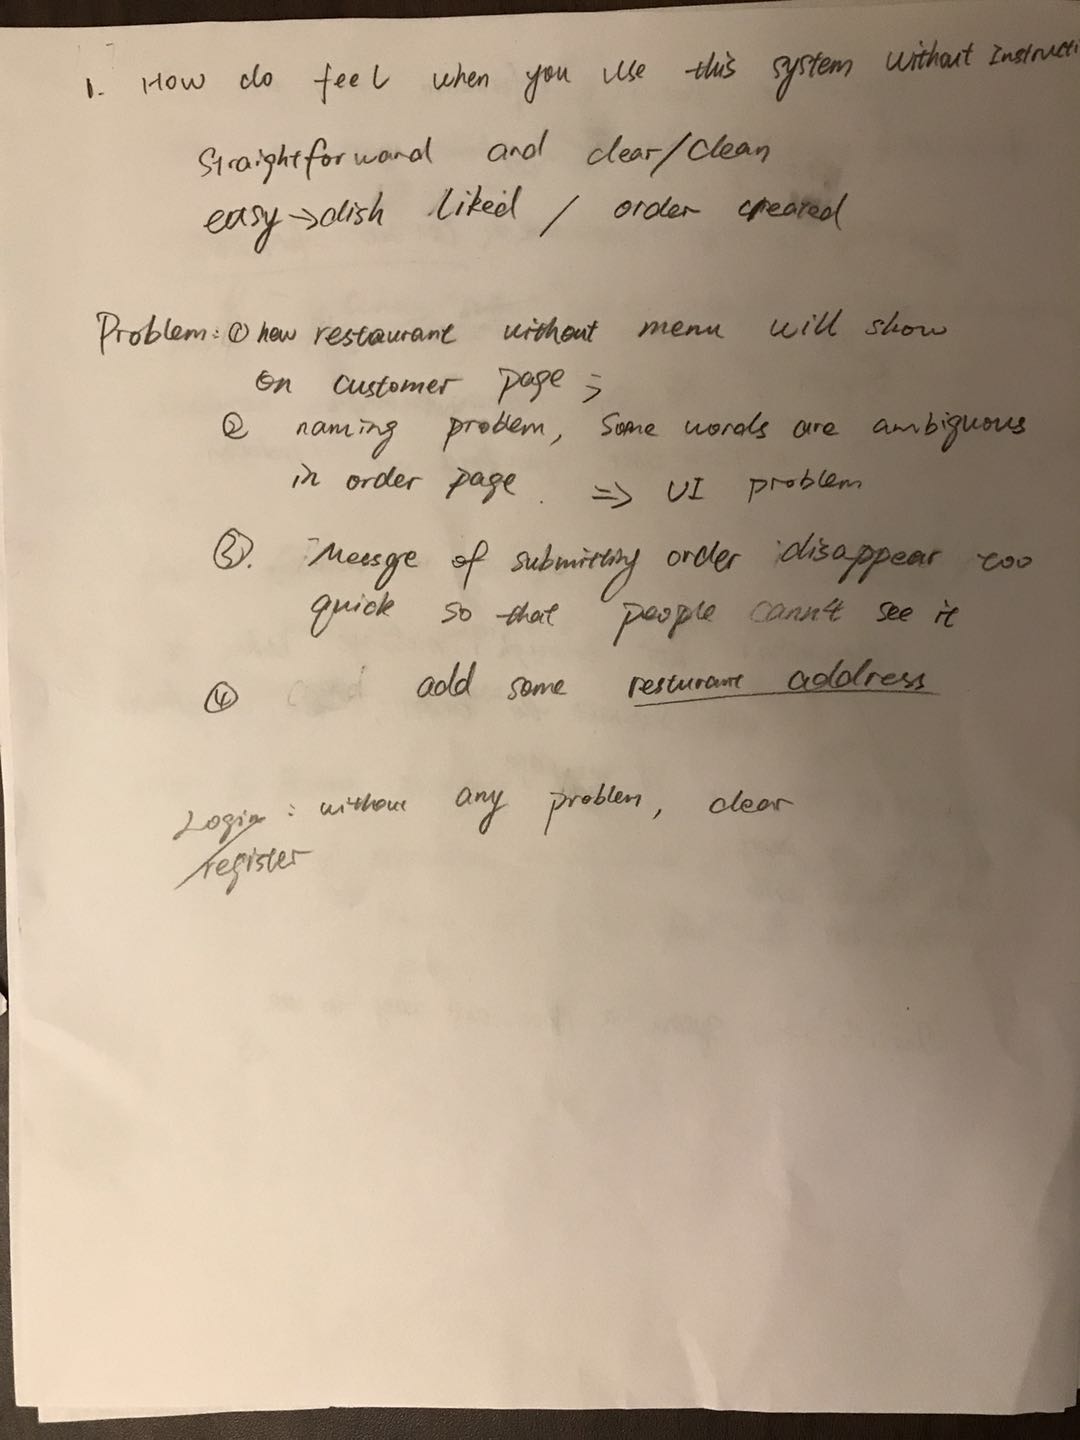 1. How do feel when you use this system without Instructi
Straightforward and clear/clean
easy→dish liked / order created
Problem: ① new restaurant without menu will show
on customer page ;
② naming problem, some words are ambiguous
in order page. ⇒ UI problem
③. Meessge of submitting order disappear too
quick so that people cann't see it
④ add some resturant address
Login : without any problem, clear
/register